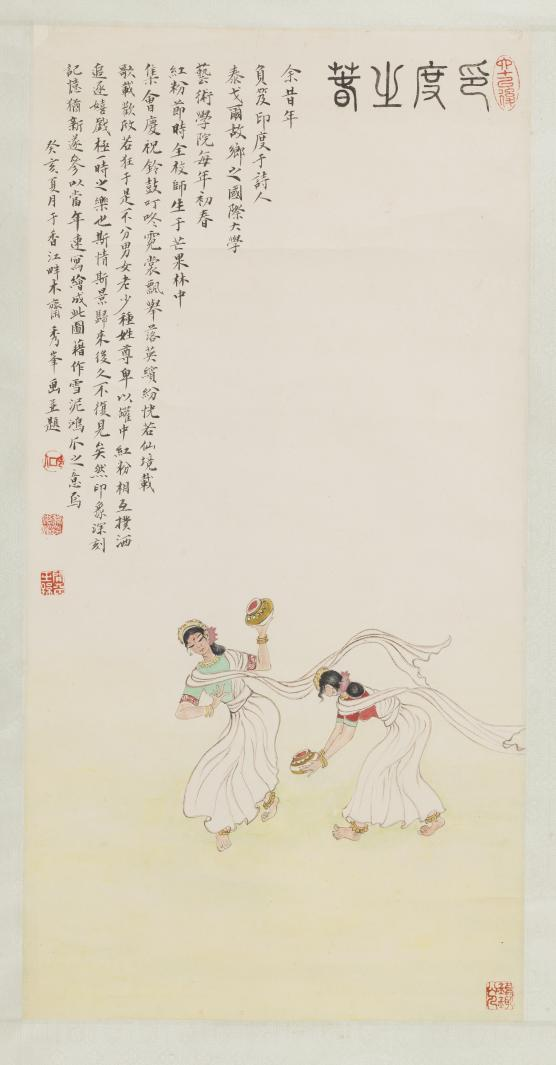 印度之春
余昔年
負笈印度于詩人
泰戈爾故鄉之國際大學
藝術學院每年初春
紅粉節時全校師生于芒果林中
集會慶祝鈴鼓叮咚霓裳飄舉落英繽紛恍若仙境載
歌載歡欣若狂于是不分男女老少種姓尊卑以罐中紅粉相互撲洒
追逐嬉戲極一時之樂也斯情斯景歸來後久不復見矣然印象深刻
記憶猶新遂參以當年速寫繪成此圖藉作雪泥鴻爪之意焉
癸亥夏月于香江畔木齋秀峯畫並題